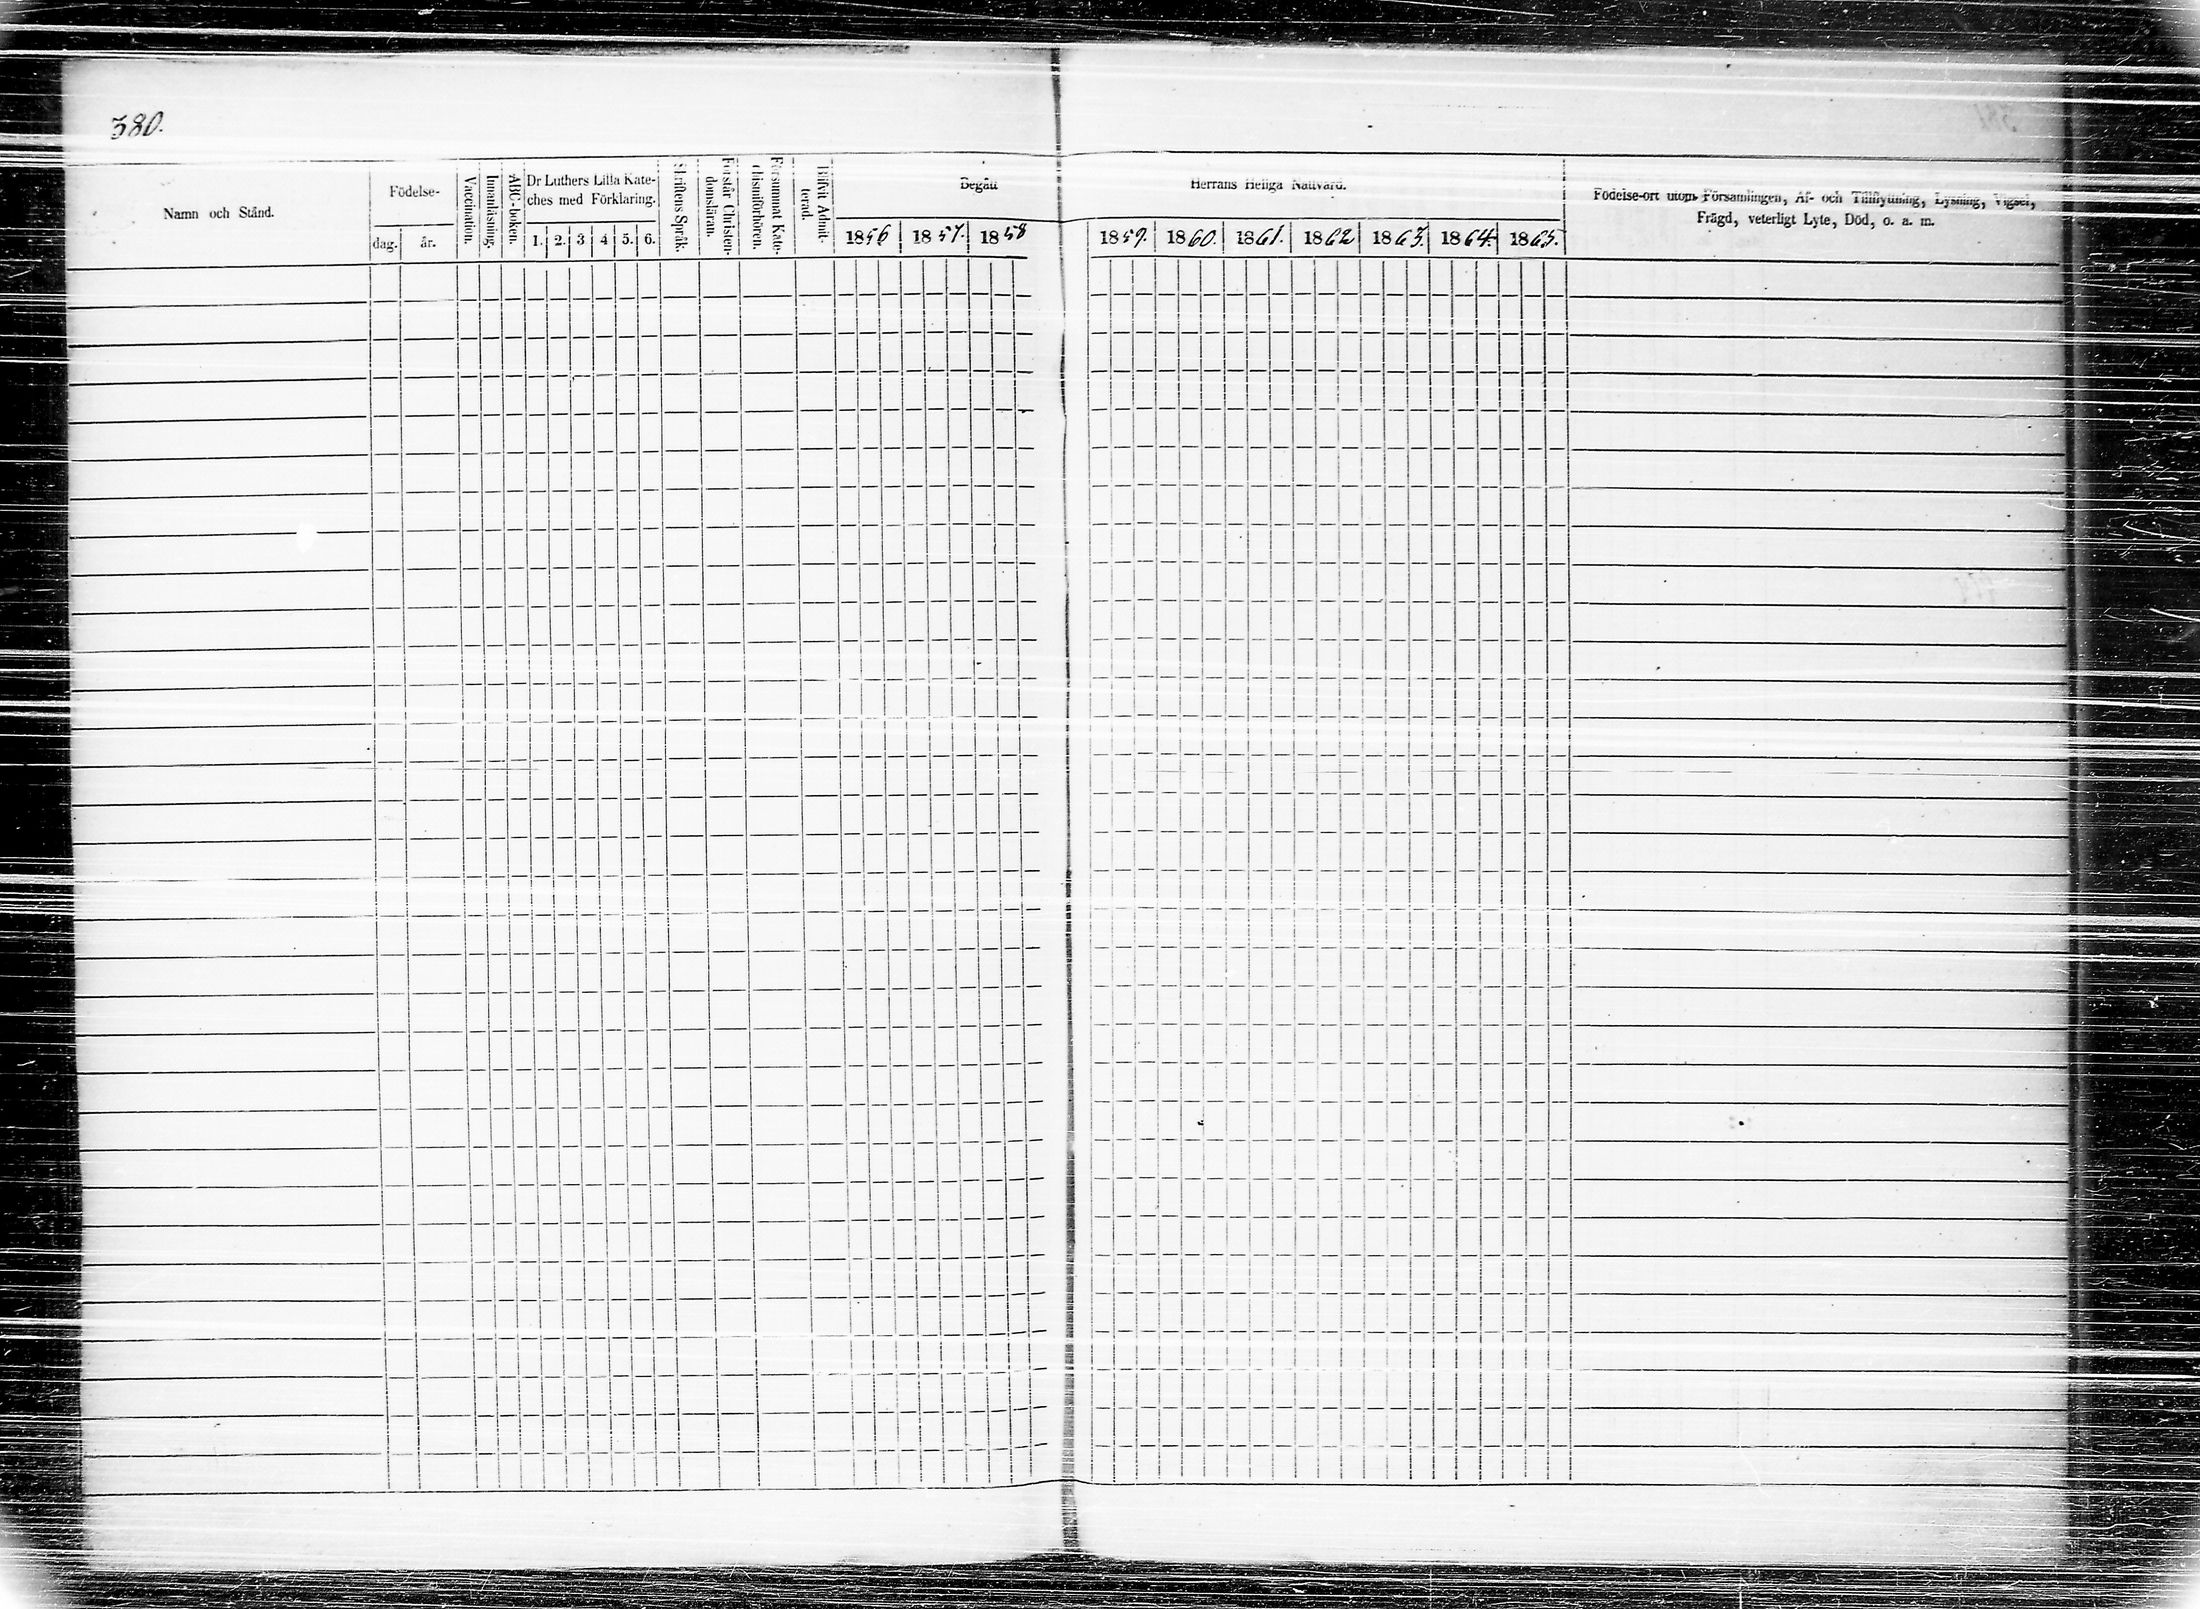 380.
Namn och Stånd.
Födelse-
dag.
år.
Vaccination.
Innanläsning.
ABC-boken.
Dr Luthers Lilla Kate-
ches med Förklaring.
1. 2. 3 4 5. 6.
Skriftens Språk.
Förstår Christen-
domsläran.
Försummat Kate-
chismiförhören.
Blifvit Admit-
terad.
Begått
1856 1857. 1858
Herrans Heliga Nattvard.
1859. 1860. 1861. 1862 1863. 1864. 1865.
Födelse-ort utom Församlingen, Af- och Tillflyttning, Lysning, Vigsel,
Frägd, veterligt Lyte, Död, o. a. m.